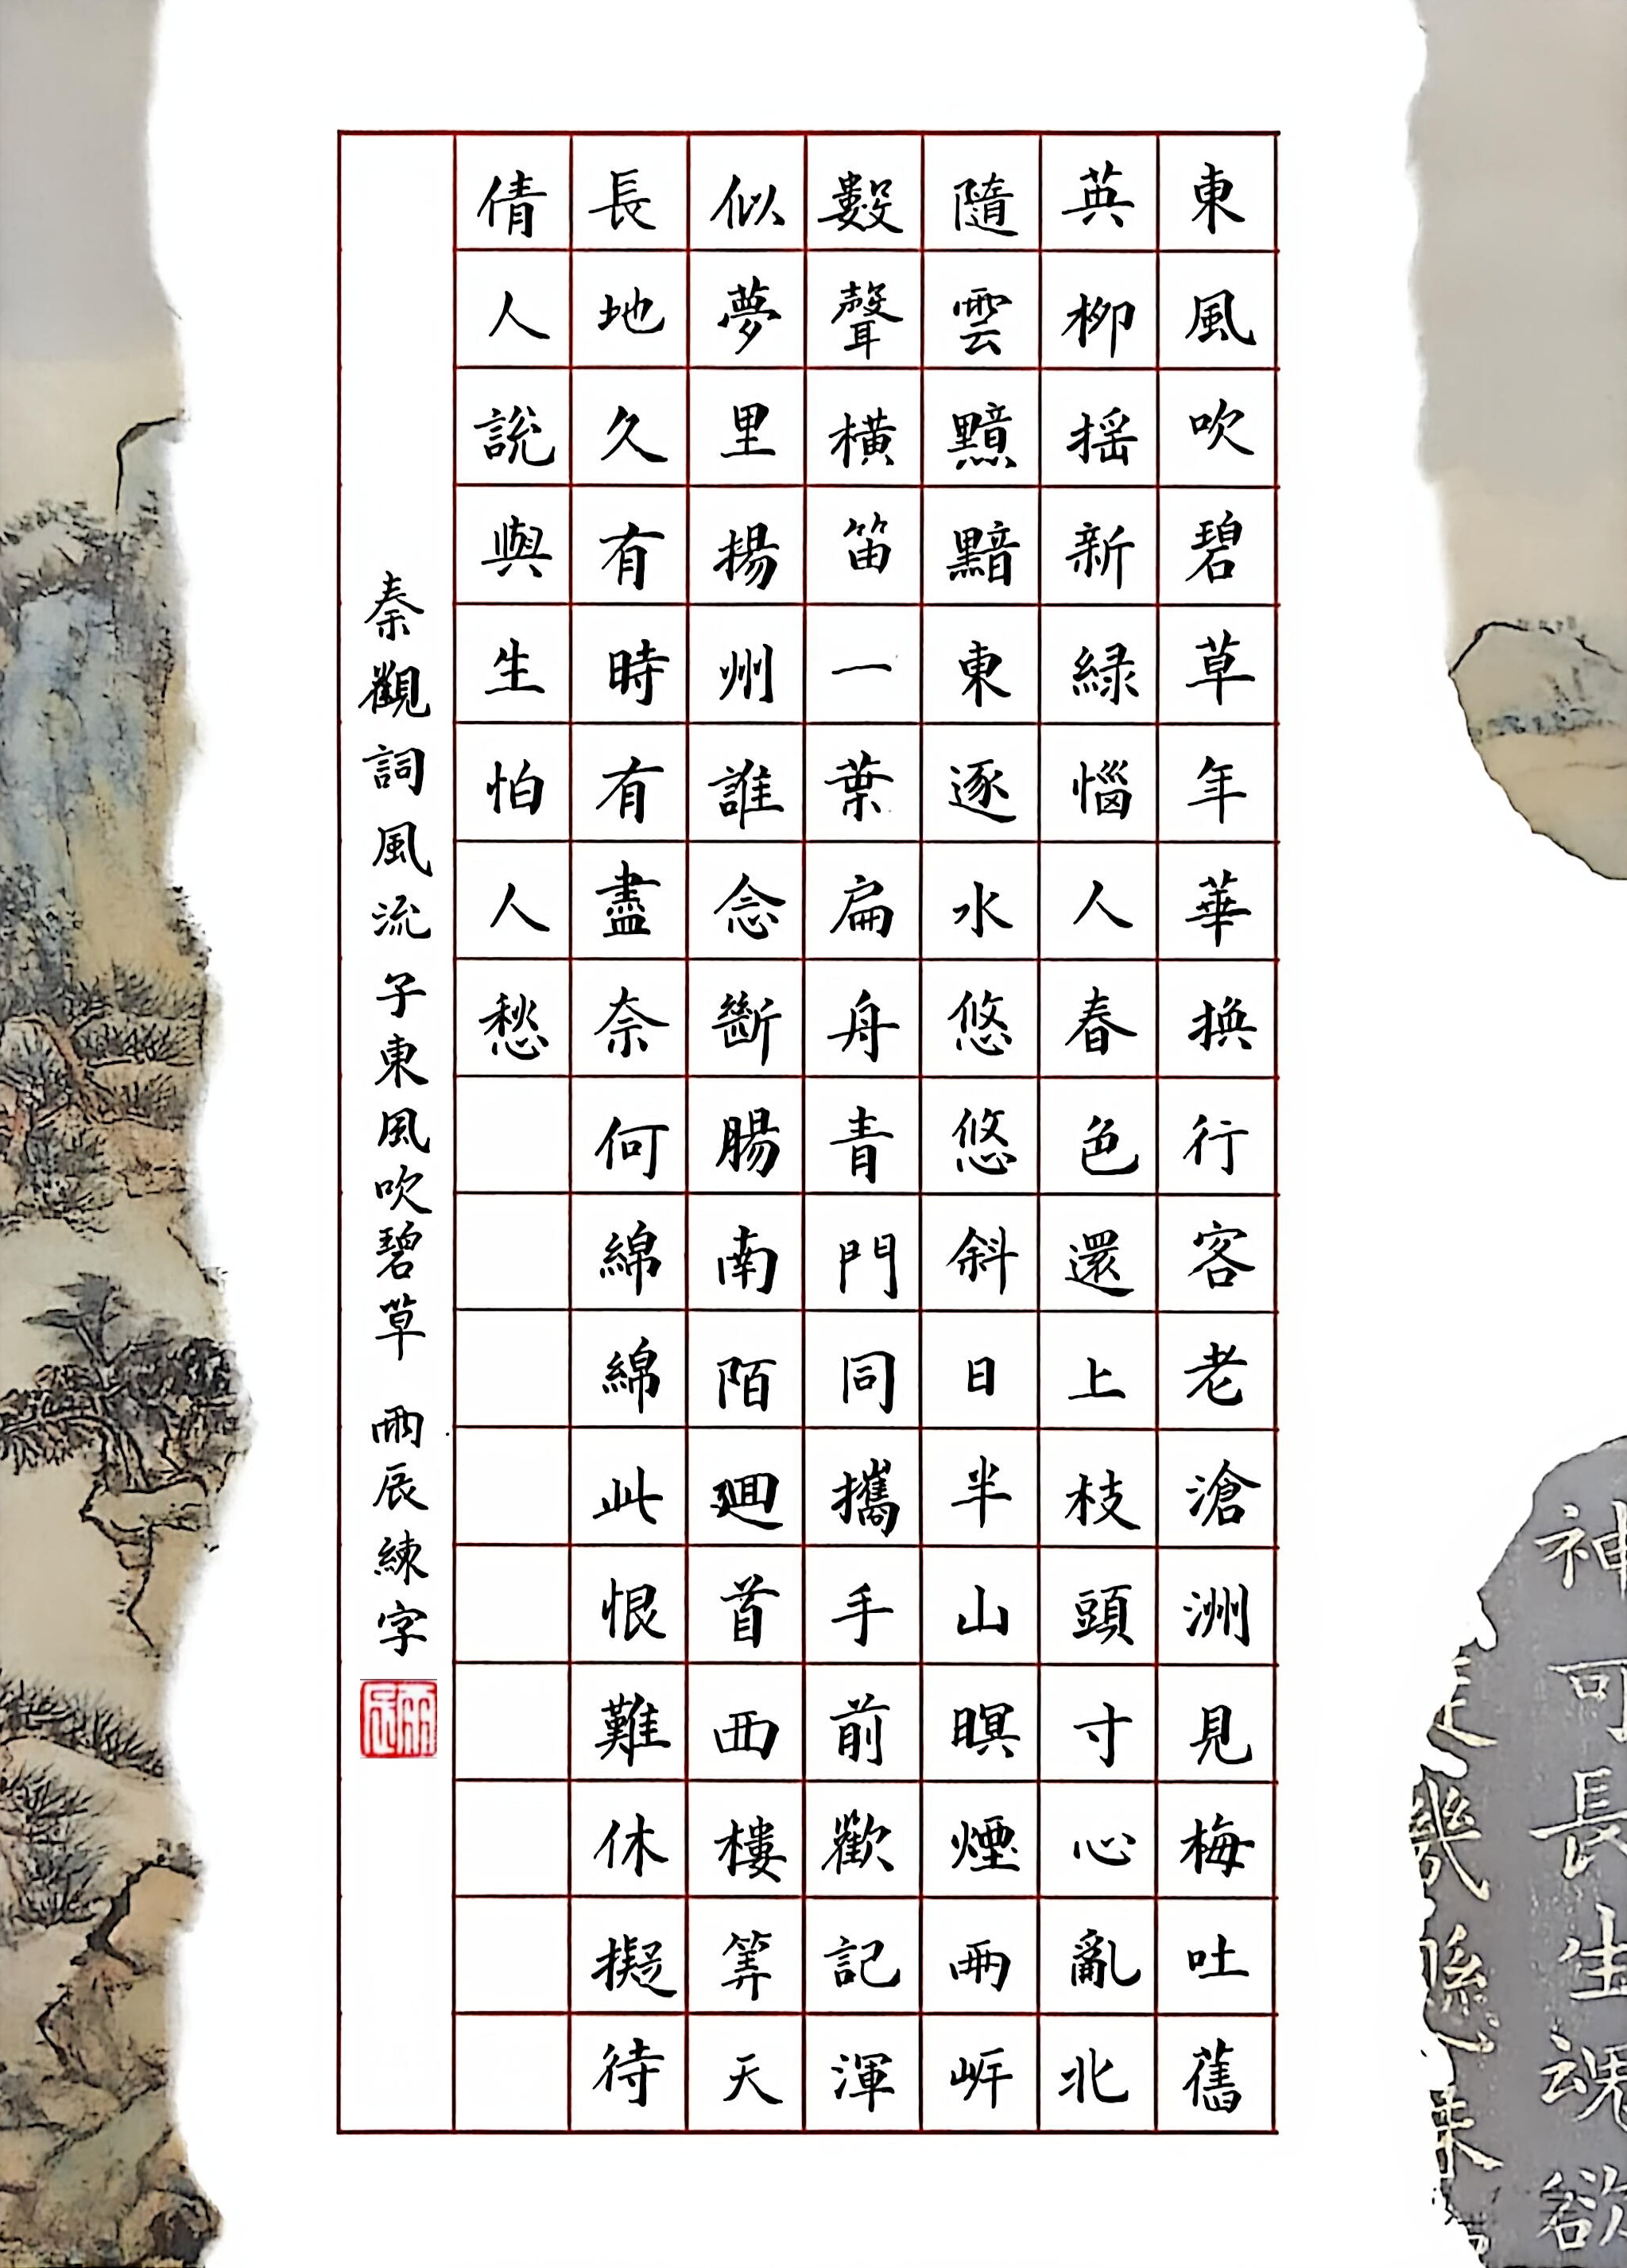 東風吹碧草年華換行客老滄洲見梅吐舊
英柳揺新緑惱人春色還上枝頭寸心亂北
隨雲黯黯東逐水悠悠斜日半山暝煙兩岍
數聲橫笛一葉扁舟青門同攜手前歡記渾
似夢里揚州誰念斷腸南陌廻首西樓筭天
長地久有時有盡奈何綿綿此恨難休擬待
倩人說與生怕人愁
秦觀詞風流子東風吹碧草 兩辰練字
兩辰
神可長生魂欲